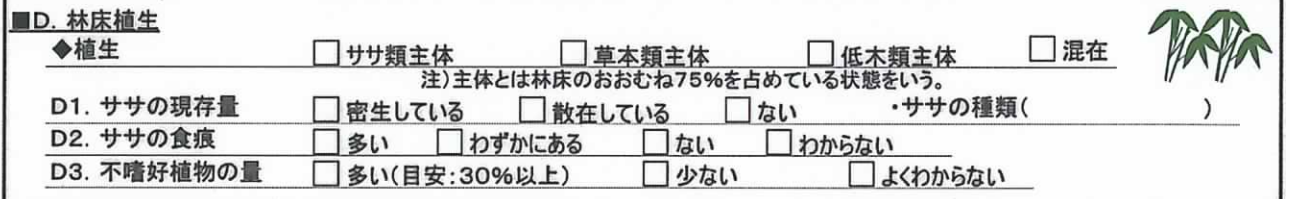 ■D. 林床植生
◆植生 □ササ類主体 □草本類主体 □低木類主体 □混在
注)主体とは林床のおおむね75%を占めている状態をいう。
D1. ササの現存量 □密生している □散在している □ない ・ササの種類( )
D2. ササの食痕 □多い □わずかにある □ない □わからない
D3. 不嗜好植物の量 □多い(目安:30%以上) □少ない □よくわからない